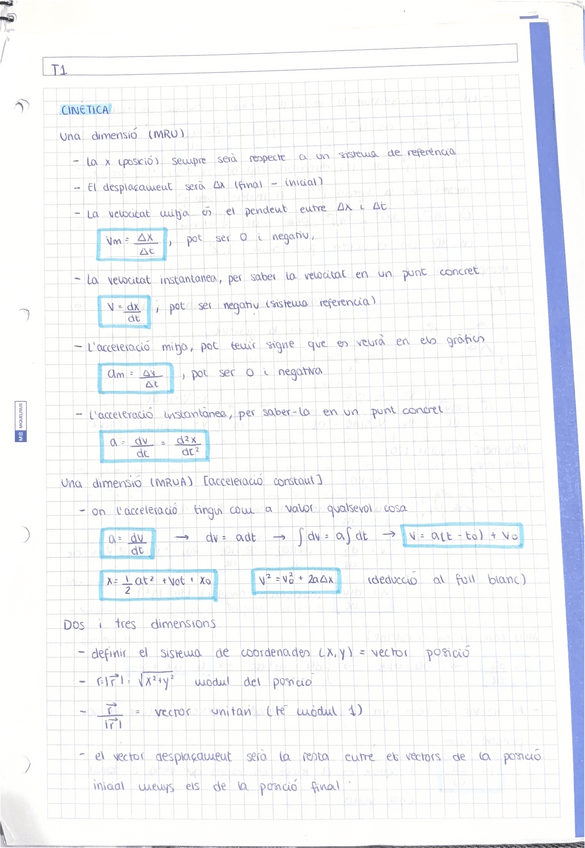 T1
CINÈTICA
Una dimensió (MRU)
- La x (posició) sempre serà respecte a un sistema de referència
- El desplaçament serà Δx (final - inicial)
- La velocitat mitja és el pendent entre Δx i Δt
Vm = Δx/Δt , pot ser 0 i negatiu.
- La velocitat instantanea, per saber la velocitat en un punt concret
V = dx/dt , pot ser negatiu (sistema referencia)
- L'acceleració mitja, pot tenir signe que es veurà en els gràfics
am = Δv/Δt , pot ser 0 i negativa
- L'acceleració instantànea, per saber-la en un punt concret
a = dv/dt = d²x/dt²
Una dimensió (MRUA) [acceleració constant]
- on l'acceleració tingui com a valor qualsevol cosa
a = dv/dt → dv = adt → ∫dv = a∫dt → V = a(t - t0) + V0
x = 1/2 at² + V0t + x0 V² = V0² + 2aΔx (deducció al full blanc)
Dos i tres dimensions
- definir el sistema de coordenades (x,y) = vector posició
- r=|r⃗| = √x²+y² mòdul del posició
- r⃗/|r⃗| = vector unitari (té mòdul 1)
- el vector desplaçament serà la resta entre els vectors de la posició
inicial menys els de la posció final.
MIQUELRIUS